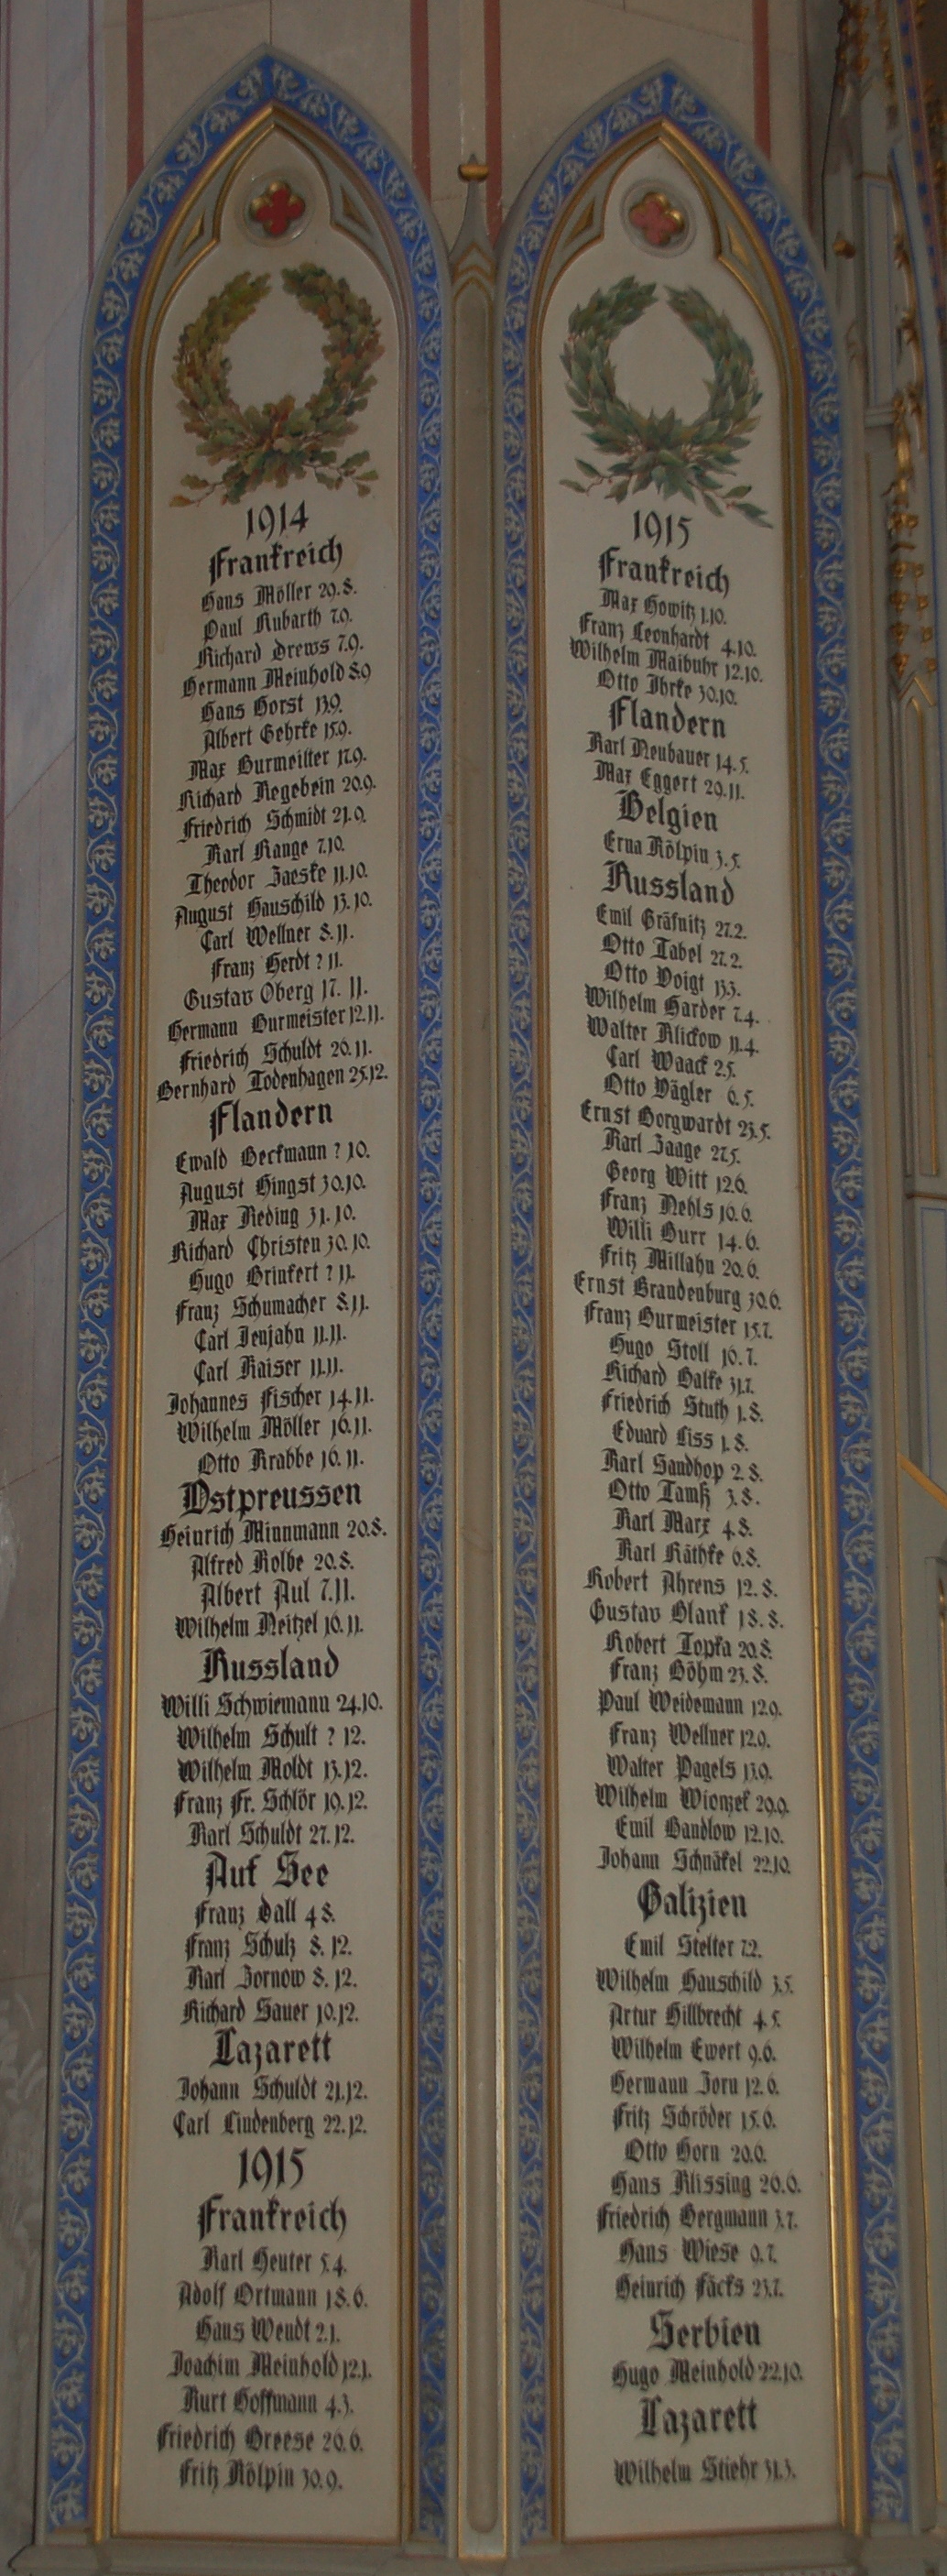 1914
Frankreich
Hans Möller 29.8.
Paul Rubarth 7.9.
Richard Drews 7.9.
Hermann Meinhold 8.9
Hans Horst 13.9.
Albert Gehrke 15.9.
Max Burmeister 17.9.
Richard Regebein 20.9.
Friedrich Schmidt 21.9.
Karl Range 7.10.
Theodor Zaeske 11.10.
August Hauschild 13.10.
Carl Wellner 8.11.
Franz Herdt ? 11.
Gustav Oberg 17. 11.
Hermann Burmeister 12.11.
Friedrich Schuldt 26.11.
Bernhard Todenhagen 25.12.
Flandern
Ewald Beckmann ? 10.
August Hingst 30.10.
Max Reding 31.10.
Richard Christen 30.10.
Hugo Brinkert ? 11.
Franz Schumacher 8.11.
Carl Jenjahn 11.11.
Carl Kaiser 11.11.
Johannes Fischer 14.11.
Wilhelm Möller 16.11.
Otto Krabbe 16.11.
Ostpreussen
Heinrich Minnmann 20.8.
Alfred Kolbe 20.8.
Albert Aul 7.11.
Wilhelm Neitzel 16.11.
Russland
Willi Schwiemann 24.10.
Wilhelm Schult ? 12.
Wilhelm Moldt 13.12.
Franz Fr. Schlör 19.12.
Karl Schuldt 27.12.
Auf See
Franz Dall 4 8.
Franz Schulz 8. 12.
Karl Zornow 8. 12.
Richard Sauer 10.12.
Lazarett
Johann Schuldt 21.12.
Carl Lindenberg 22.12.
1915
Frankreich
Karl Heuter 5.4.
Adolf Ortmann 18.6.
Hans Wendt 2.1.
Joachim Meinhold 12.1.
Kurt Hoffmann 4.3.
Friedrich Breese 26.6.
Fritz Kölpin 30.9.
1915
Frankreich
Max Howitz 1.10.
Franz Leonhardt 4.10.
Wilhelm Maibuhr 12.10.
Otto Ihrke 30.10.
Flandern
Karl Neubauer 14.5.
Max Eggert 29.11.
Belgien
Erna Kölpin 3.5.
Russland
Emil Gräfnitz 27.2.
Otto Tabel 27.2.
Otto Voigt 13.3.
Wilhelm Harder 7.4.
Walter Klickow 11.4.
Carl Waack 2.5.
Otto Vägler 6.5.
Ernst Borgwardt 23.5.
Karl Zaage 27.5.
Georg Witt 12.6.
Franz Nehls 16.6.
Willi Burr 14.6.
Fritz Millahn 20.6.
Ernst Brandenburg 30.6.
Franz Burmeister 15.7.
Hugo Stoll 16.7.
Richard Balke 31.7.
Friedrich Stuth 1.8.
Eduard Liss 1.8.
Karl Sandhop 2.8.
Otto Tamß 3.8.
Karl Marx 4.8.
Karl Räthke 6.8.
Robert Ahrens 12.8.
Gustav Blank 18.8.
Robert Topka 20.8.
Franz Böhm 23.8.
Paul Weidemann 12.9.
Franz Wellner 12.9.
Walter Pagels 13.9.
Wilhelm Wionzek 29.9.
Emil Bandlow 12.10.
Johann Schnäkel 22.10.
Galizien
Emil Stelter 7.2.
Wilhelm Hauschild 3.5.
Artur Hillbrecht 4.5.
Wilhelm Ewert 9.6.
Hermann Zorn 12.6.
Fritz Schröder 15.6.
Otto Horn 20.6.
Hans Klissing 26.6.
Friedrich Bergmann 3.7.
Hans Wiese 9.7.
Heinrich Fäcks 23.7.
Serbien
Hugo Meinhold 22.10.
Lazarett
Wilhelm Stiehr 31.3.